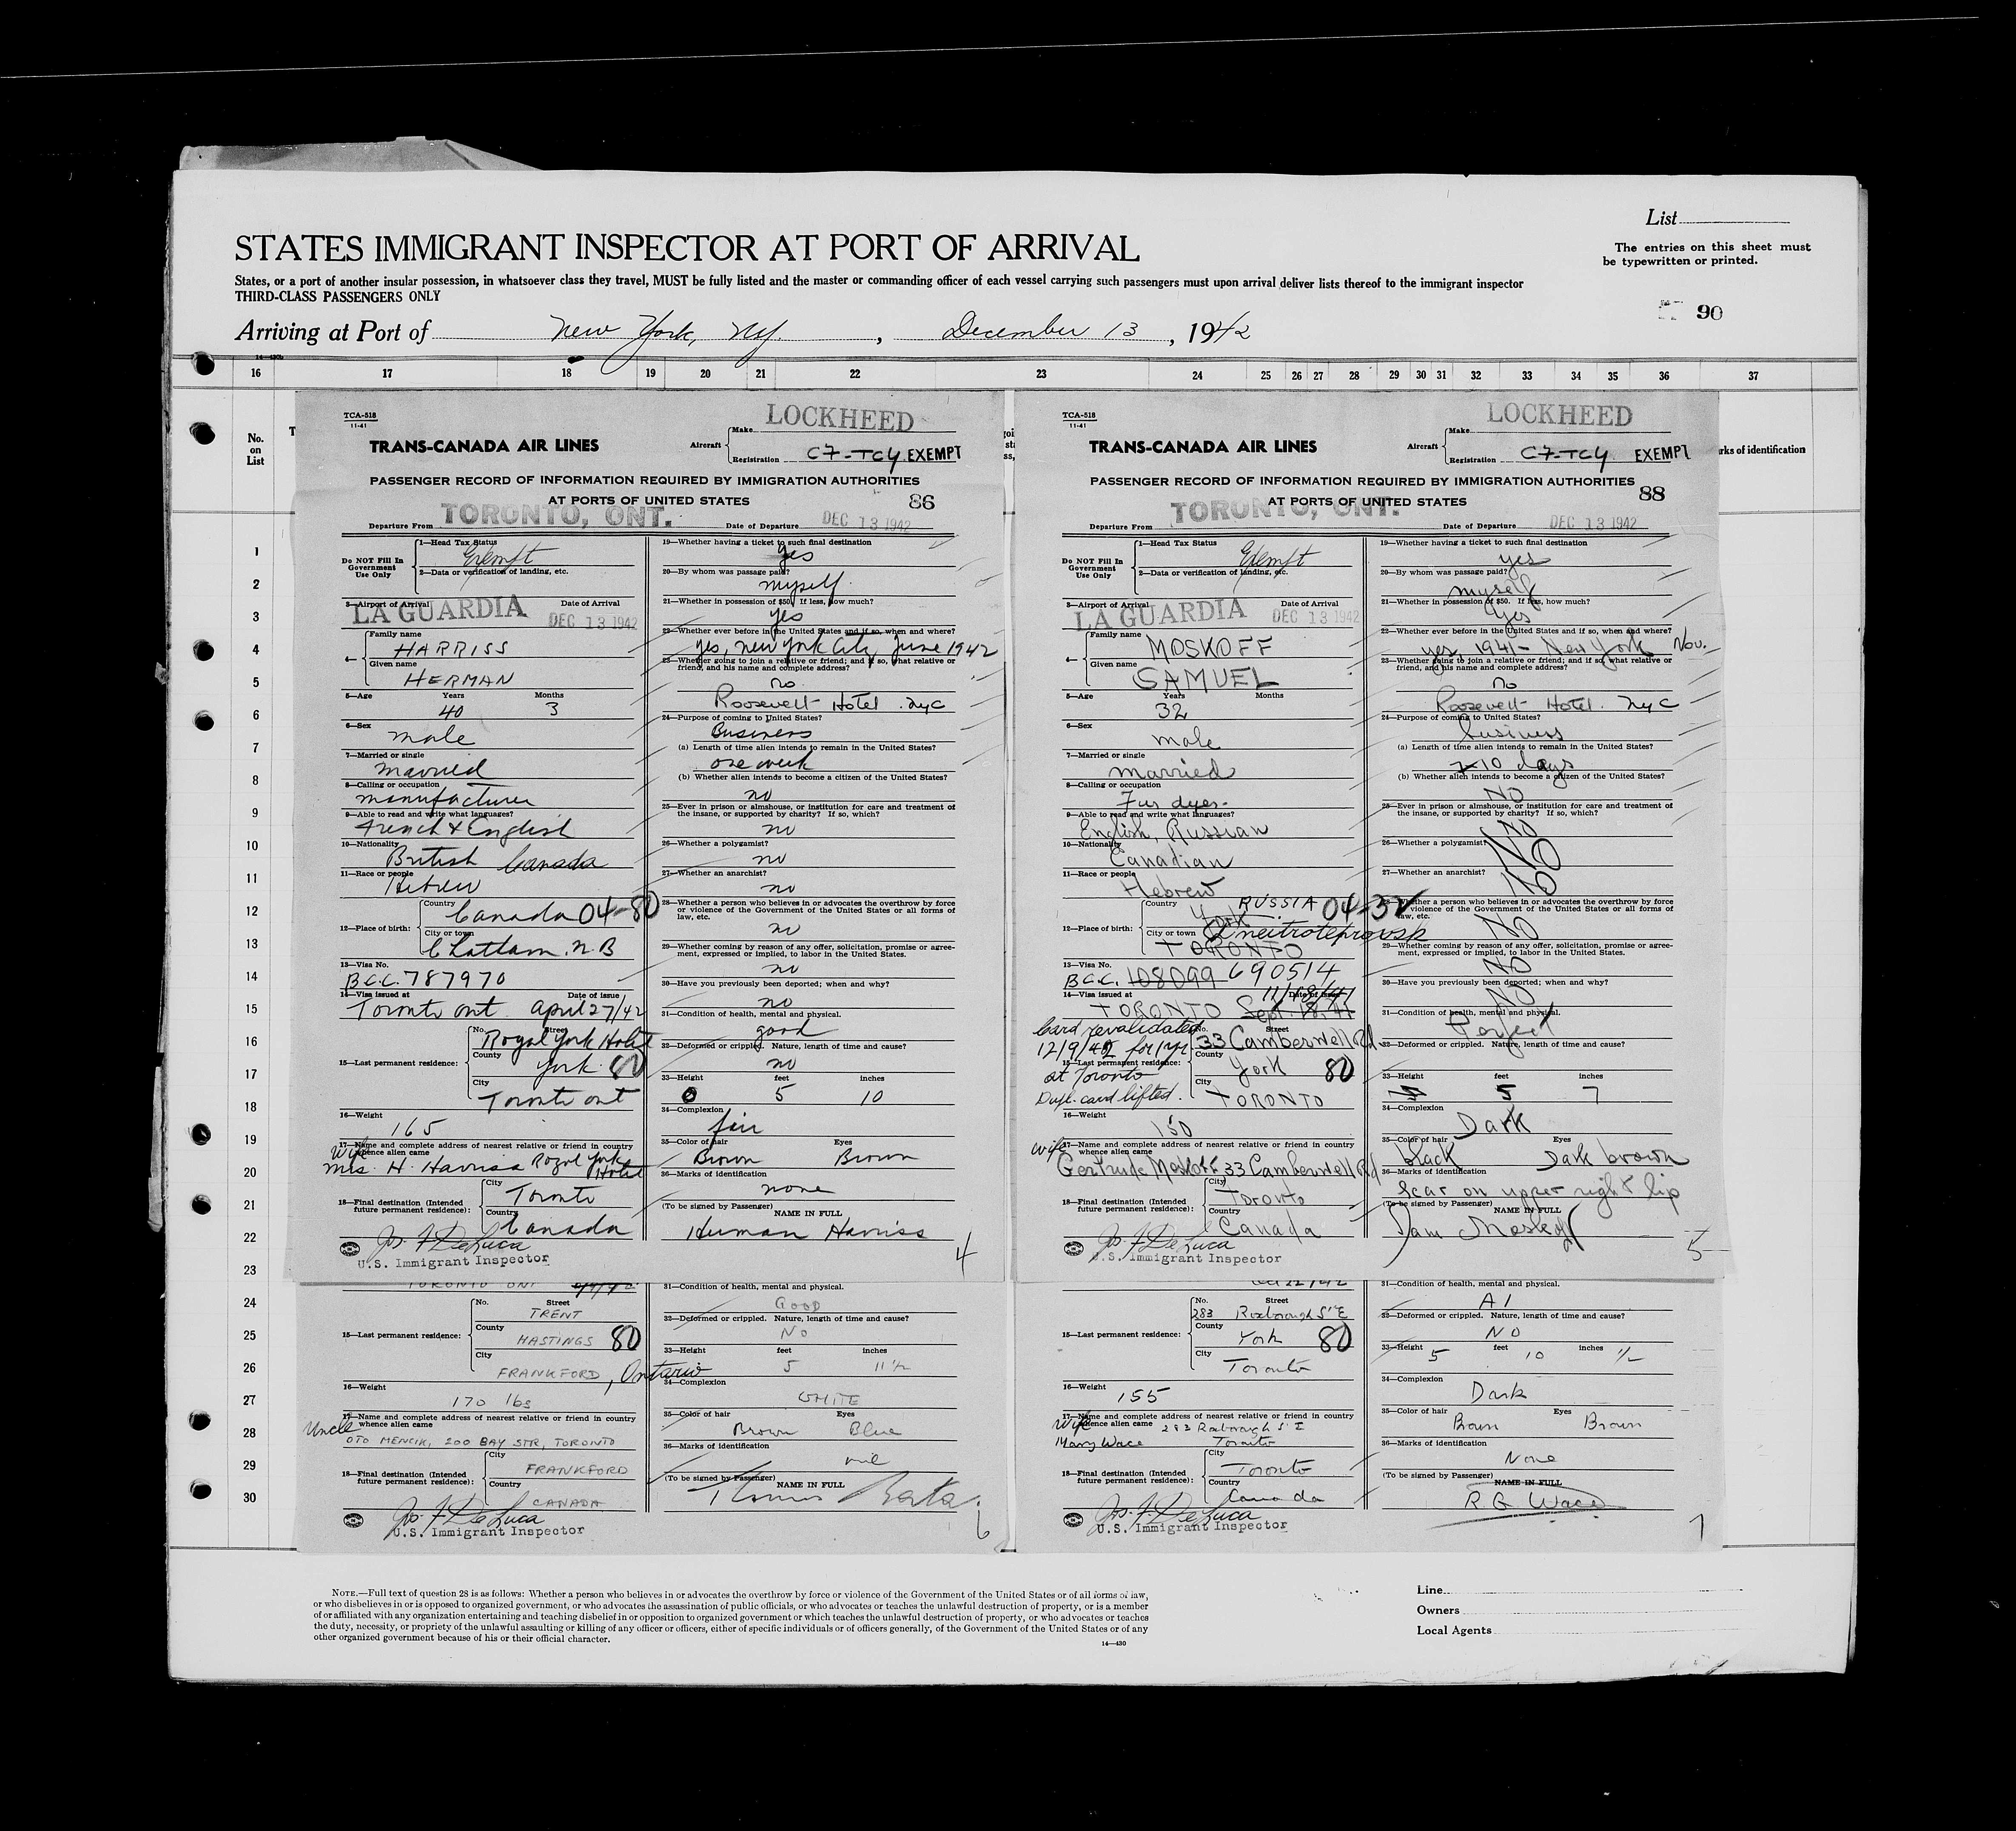 List
STATES IMMIGRANT INSPECTOR AT PORT OF ARRIVAL
The entries on this sheet must
be typewritten or printed.
States, or a port of another insular possession, in whatsoever class they travel, MUST be fully listed and the master or commanding officer of each vessel carrying such passengers must upon arrival deliver lists thereof to the immigrant inspector
THIRD-CLASS PASSENGERS ONLY
90
Arriving at Port of New York, NY. , December 13 , 1942
16 17 18 19 20 21 22 23 24 25 26 27 28 29 30 31 32 33 34 35 36 37
No.
on
List
rks of identification
1
2
3
4
5
6
7
8
9
10
11
12
13
14
15
16
17
18
19
20
21
22
23
24
25
26
27
28
29
30
TCA-518
11-41
LOCKHEED
TRANS-CANADA AIR LINES
Aircraft
Make
Registration C7-TCY EXEMPT
PASSENGER RECORD OF INFORMATION REQUIRED BY IMMIGRATION AUTHORITIES
AT PORTS OF UNITED STATES
86
Departure From TORONTO, ONT. Date of Departure DEC 13 1942
Do NOT Fill In
Government
Use Only
1—Head Tax Status
Exempt
2—Data or verification of landing, etc.
3—Airport of Arrival Date of Arrival
LA GUARDIA DEC 13 1942
4—
Family name
HARRISS
Given name
HERMAN
5—Age Years Months
40 3
6—Sex
male
7—Married or single
married
8—Calling or occupation
manufacturer
9—Able to read and write what languages?
French & English
10—Nationality
British Canada
11—Race or people
Hebrew
12—Place of birth:
Country
Canada 04-80
City or town
Chatham. N.B
13—Visa No.
B.C.C. 787970
14—Visa issued at Date of issue
Toronto ont April 27/42
15—Last permanent residence:
No. Street
Royal York Hotel
County
York 80
City
Toronto ont
16—Weight
165
17—Name and complete address of nearest relative or friend in country
whence alien came
Wife
Mrs. H. Harriss Royal York Hotel
18—Final destination (Intended
future permanent residence):
City
Toronto
Country
Canada
Jos. F. DeLuca
U.S. Immigrant Inspector
19—Whether having a ticket to such final destination
yes
20—By whom was passage paid?
myself
21—Whether in possession of $50. If less, how much?
yes
22—Whether ever before in the United States and if so, when and where?
yes, new york City, June 1942
23—Whether going to join a relative or friend; and if so, what relative or
friend, and his name and complete address?
no
Roosevelt Hotel. NYC
24—Purpose of coming to United States?
Business
(a) Length of time alien intends to remain in the United States?
one week
(b) Whether alien intends to become a citizen of the United States?
no
25—Ever in prison or almshouse, or institution for care and treatment of
the insane, or supported by charity? If so, which?
no
26—Whether a polygamist?
no
27—Whether an anarchist?
no
28—Whether a person who believes in or advocates the overthrow by force
or violence of the Government of the United States or all forms of
law, etc.
no
29—Whether coming by reason of any offer, solicitation, promise or agree-
ment, expressed or implied, to labor in the United States.
no
30—Have you previously been deported; when and why?
no
31—Condition of health, mental and physical.
good
32—Deformed or crippled. Nature, length of time and cause?
no
33—Height feet inches
5 10
34—Complexion
fair
35—Color of hair Eyes
Brown Brown
36—Marks of identification
none
(To be signed by Passenger)
NAME IN FULL
Herman Harriss
4
TCA-518
11-41
LOCKHEED
TRANS-CANADA AIR LINES
Aircraft
Make
Registration C7-TCY EXEMPT
PASSENGER RECORD OF INFORMATION REQUIRED BY IMMIGRATION AUTHORITIES
AT PORTS OF UNITED STATES
88
Departure From TORONTO, ONT. Date of Departure DEC 13 1942
Do NOT Fill In
Government
Use Only
1—Head Tax Status
Exempt
2—Data or verification of landing, etc.
3—Airport of Arrival Date of Arrival
LA GUARDIA DEC 13 1942
4—
Family name
MOSKOFF
Given name
SAMUEL
5—Age Years Months
32
6—Sex
male
7—Married or single
married
8—Calling or occupation
Fur dyer.
9—Able to read and write what languages?
English, Russian
10—Nationality
Canadian
11—Race or people
Hebrew
12—Place of birth:
Country
York RUSSIA 04-32
City or town
Dneitroteprovsk
TORONTO
13—Visa No.
B.C.C. 108099 690514
14—Visa issued at Date of issue
11/18/41
TORONTO Sept. 18, 41
Card revalidated
12/9/42 for 1 yr
at Toronto
Dupl. card lifted.
15—Last permanent residence:
No. Street
33 Camberwell Rd.
County
York 80
City
TORONTO
16—Weight
150
17—Name and complete address of nearest relative or friend in country
whence alien came
wife
Gertrude Moskoff 33 Camberwell Rd
18—Final destination (Intended
future permanent residence):
City
Toronto
Country
Canada
Jos. F. DeLuca
U.S. Immigrant Inspector
19—Whether having a ticket to such final destination
yes
20—By whom was passage paid?
myself
21—Whether in possession of $50. If less, how much?
yes
22—Whether ever before in the United States and if so, when and where?
yes, 1941 - New York Nov.
23—Whether going to join a relative or friend; and if so, what relative or
friend, and his name and complete address?
no
Roosevelt Hotel. NYC
24—Purpose of coming to United States?
business
(a) Length of time alien intends to remain in the United States?
10 days
(b) Whether alien intends to become a citizen of the United States?
NO
25—Ever in prison or almshouse, or institution for care and treatment of
the insane, or supported by charity? If so, which?
NO
26—Whether a polygamist?
NO
27—Whether an anarchist?
NO
28—Whether a person who believes in or advocates the overthrow by force
or violence of the Government of the United States or all forms of
law, etc.
NO
29—Whether coming by reason of any offer, solicitation, promise or agree-
ment, expressed or implied, to labor in the United States.
NO
30—Have you previously been deported; when and why?
NO
31—Condition of health, mental and physical.
Perfect
32—Deformed or crippled. Nature, length of time and cause?
33—Height feet inches
5 7
34—Complexion
Dark
35—Color of hair Eyes
black Dark brown
36—Marks of identification
Scar on upper right lip
(To be signed by Passenger)
NAME IN FULL
Sam Moskoff
5
TORONTO ONT
15—Last permanent residence:
No. Street
TRENT
County
HASTINGS 80
City
FRANKFORD, Ontario
16—Weight
170 lbs
17—Name and complete address of nearest relative or friend in country
whence alien came
Uncle
OTO MENCIK, 200 BAY STR, TORONTO
18—Final destination (Intended
future permanent residence):
City
FRANKFORD
Country
CANADA
Jos. F. DeLuca
U.S. Immigrant Inspector
31—Condition of health, mental and physical.
GOOD
32—Deformed or crippled. Nature, length of time and cause?
No
33—Height feet inches
5 11 1/2
34—Complexion
WHITE
35—Color of hair Eyes
Brown Blue
36—Marks of identification
nil
(To be signed by Passenger)
NAME IN FULL
Thomas Bata
6
15—Last permanent residence:
No. Street
283 Roxborough St E
County
York 80
City
Toronto
16—Weight
155
17—Name and complete address of nearest relative or friend in country
whence alien came
Wife 283 Roxborough St E
Mary Wace Toronto
18—Final destination (Intended
future permanent residence):
City
Toronto
Country
Canada
Jos. F. DeLuca
U.S. Immigrant Inspector
31—Condition of health, mental and physical.
A1
32—Deformed or crippled. Nature, length of time and cause?
NO
33—Height feet inches
5 10 1/2
34—Complexion
Dark
35—Color of hair Eyes
Brown Brown
36—Marks of identification
None
(To be signed by Passenger)
NAME IN FULL
R. G. Wace
7
NOTE.—Full text of question 28 is as follows: Whether a person who believes in or advocates the overthrow by force or violence of the Government of the United States or of all forms of law,
or who disbelieves in or is opposed to organized government, or who advocates the assassination of public officials, or who advocates or teaches the unlawful destruction of property, or is a member
of or affiliated with any organization entertaining and teaching disbelief in or opposition to organized government or which teaches the unlawful destruction of property, or who advocates or teaches
the duty, necessity, or propriety of the unlawful assaulting or killing of any officer or officers, either of specific individuals or of officers generally, of the Government of the United States or of any
other organized government because of his or their official character.
14—430
Line
Owners
Local Agents